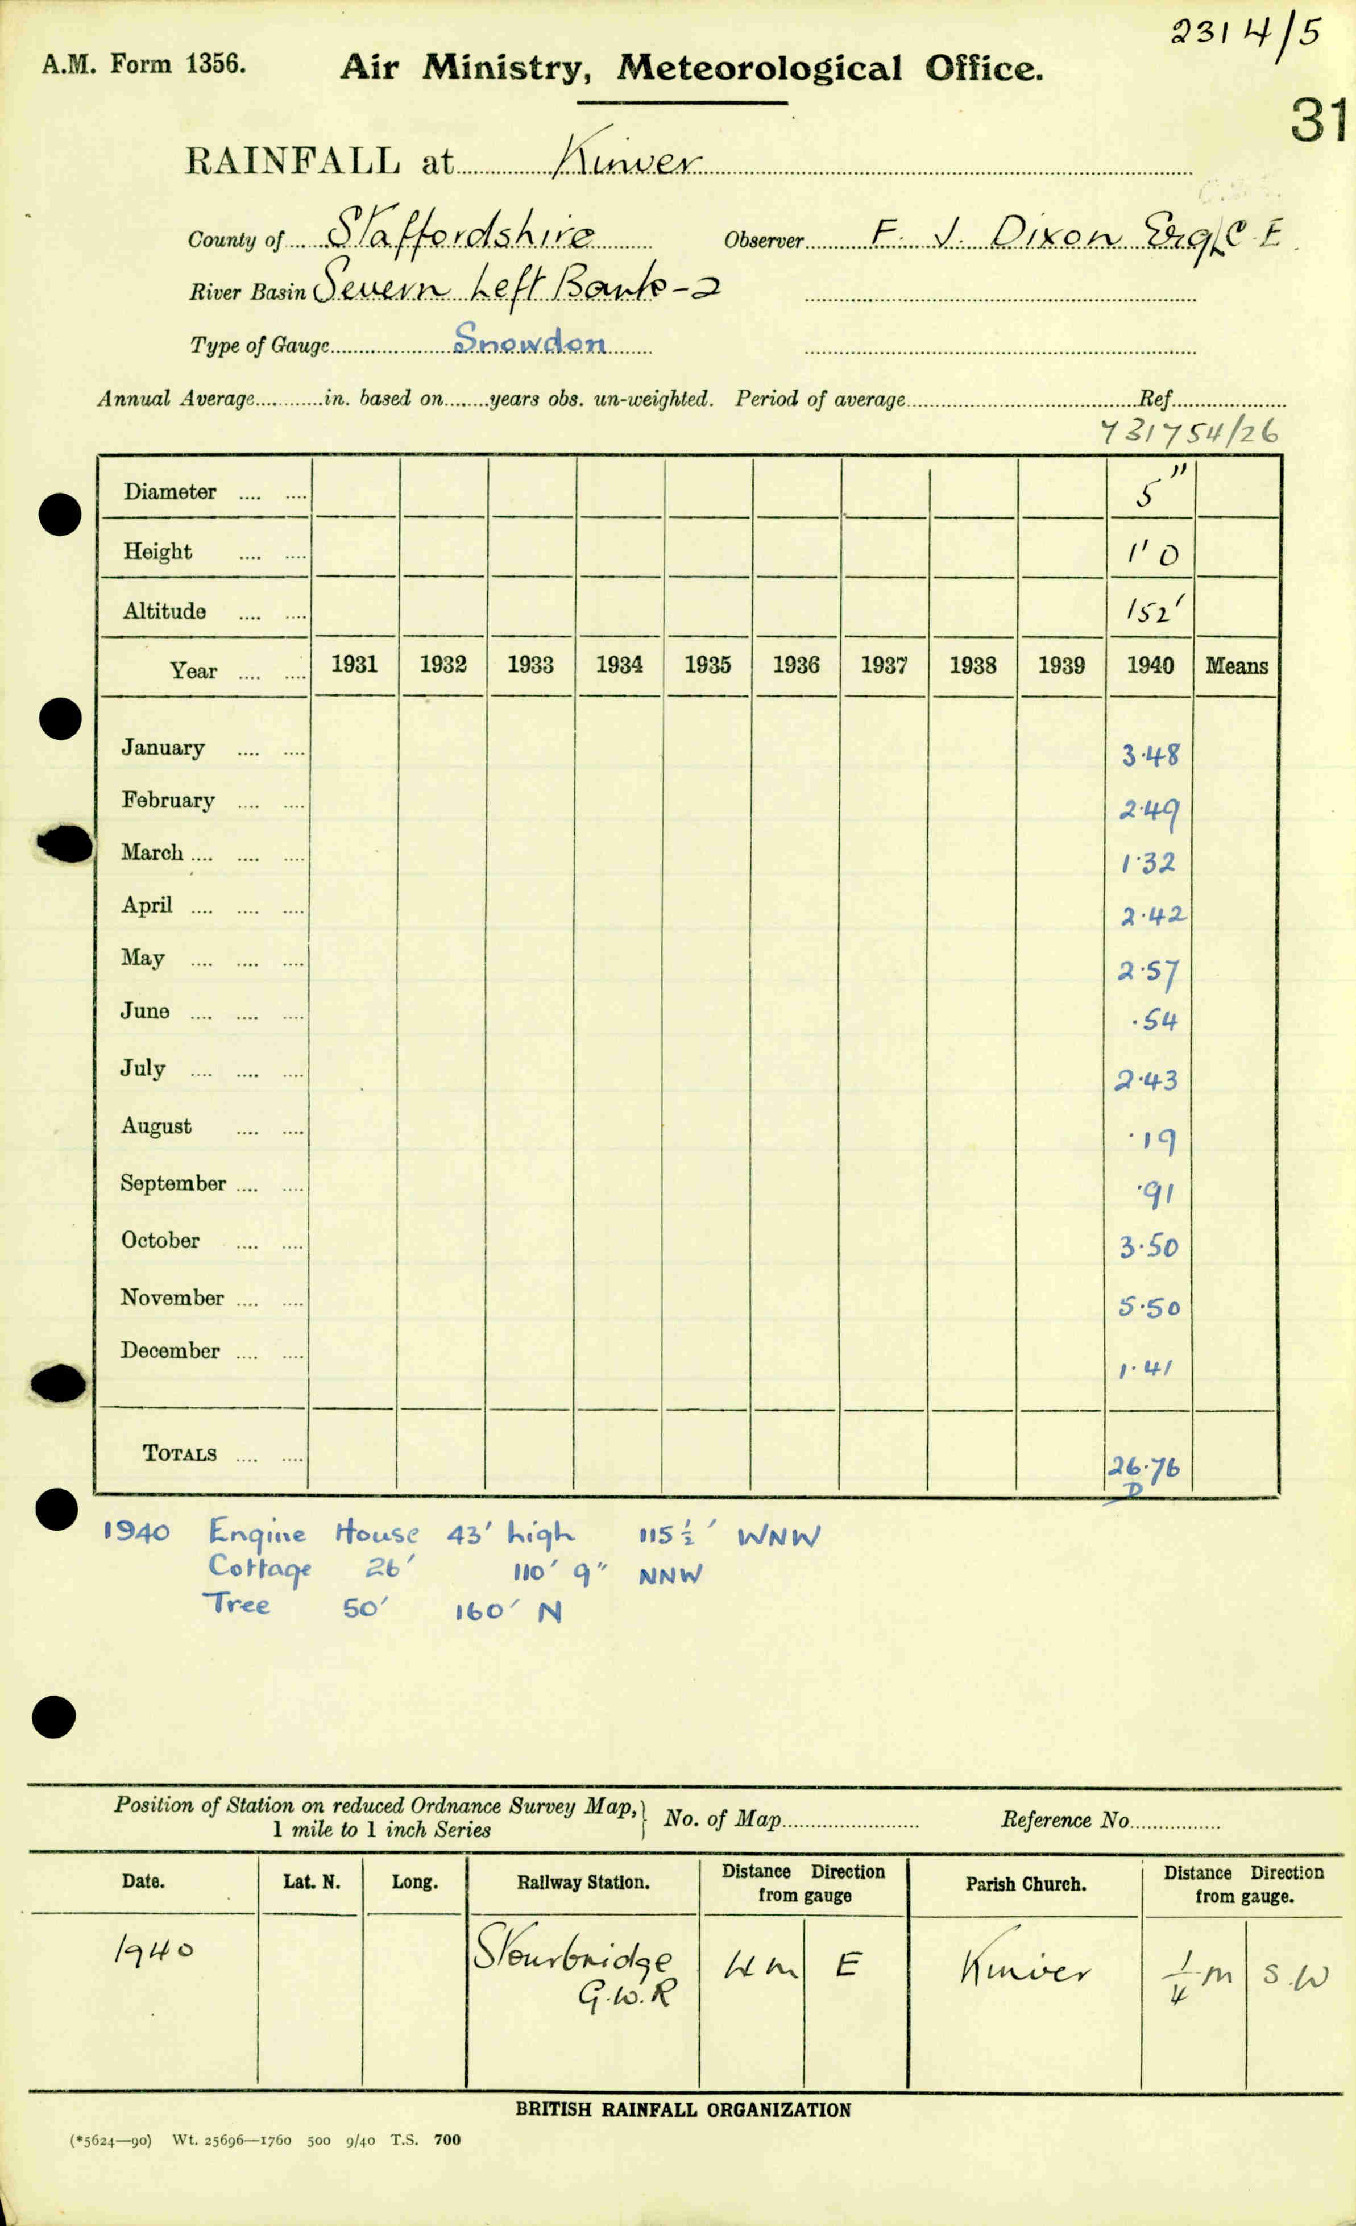 2314/5
A.M. Form 1356. Air Ministry, Meteorological Office.
31
RAINFALL at Kinver
County of Staffordshire Observer F. J. Dixon Esq C.E.
River Basin Severn Left Bank-2
Type of Gauge Snowdon
Annual Average in. based on years obs. un-weighted. Period of average Ref.
731754/26
Diameter 5"
Height 1' 0
Altitude 152'
Year 1931 1932 1933 1934 1935 1936 1937 1938 1939 1940 Means
January 3.48
February 2.49
March 1.32
April 2.42
May 2.57
June .54
July 2.43
August .19
September .91
October 3.50
November 5.50
December 1.41
TOTALS 26.76
D
1940 Engine House 43' high 115½' WNW
Cottage 26' 110' 9" NNW
Tree 50' 160' N
Position of Station on reduced Ordnance Survey Map, } No. of Map Reference No.
1 mile to 1 inch Series
Date. Lat. N. Long. Railway Station. Distance Direction from gauge Parish Church. Distance Direction from gauge.
1940 Stourbridge G.W.R 4 m E Kinver ¼ m S.W
BRITISH RAINFALL ORGANIZATION
(*5624—90) Wt. 25696—1760 500 9/40 T.S. 700